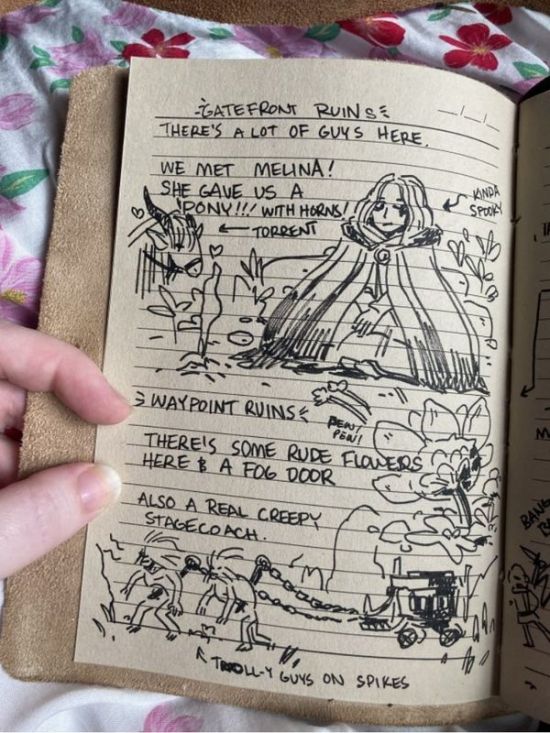 GATEFRONT RUINS
_/_/_
THERE'S A LOT OF GUYS HERE.
WE MET MELINA!
SHE GAVE US A
PONY!!! WITH HORNS!
← TORRENT
KINDA
SPOOKY
WAYPOINT RUINS
PEW!
PEW!
THERE'S SOME RUDE FLOWERS
HERE & A FOG DOOR
ALSO A REAL CREEPY
STAGECOACH.
TROLL-Y GUYS ON SPIKES
M
BANG